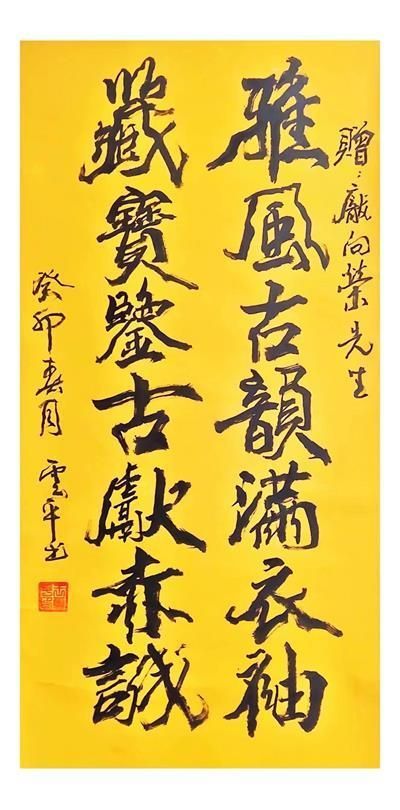 贈：龐向榮先生
雅風古韻滿衣袖
藏寶鑒古獻赤誠
癸卯春月 雲平书